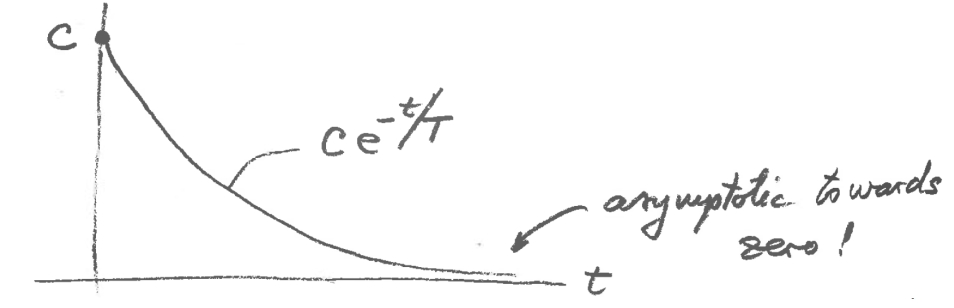 C
C e^{-t/T}
asymptotic towards
zero!
t